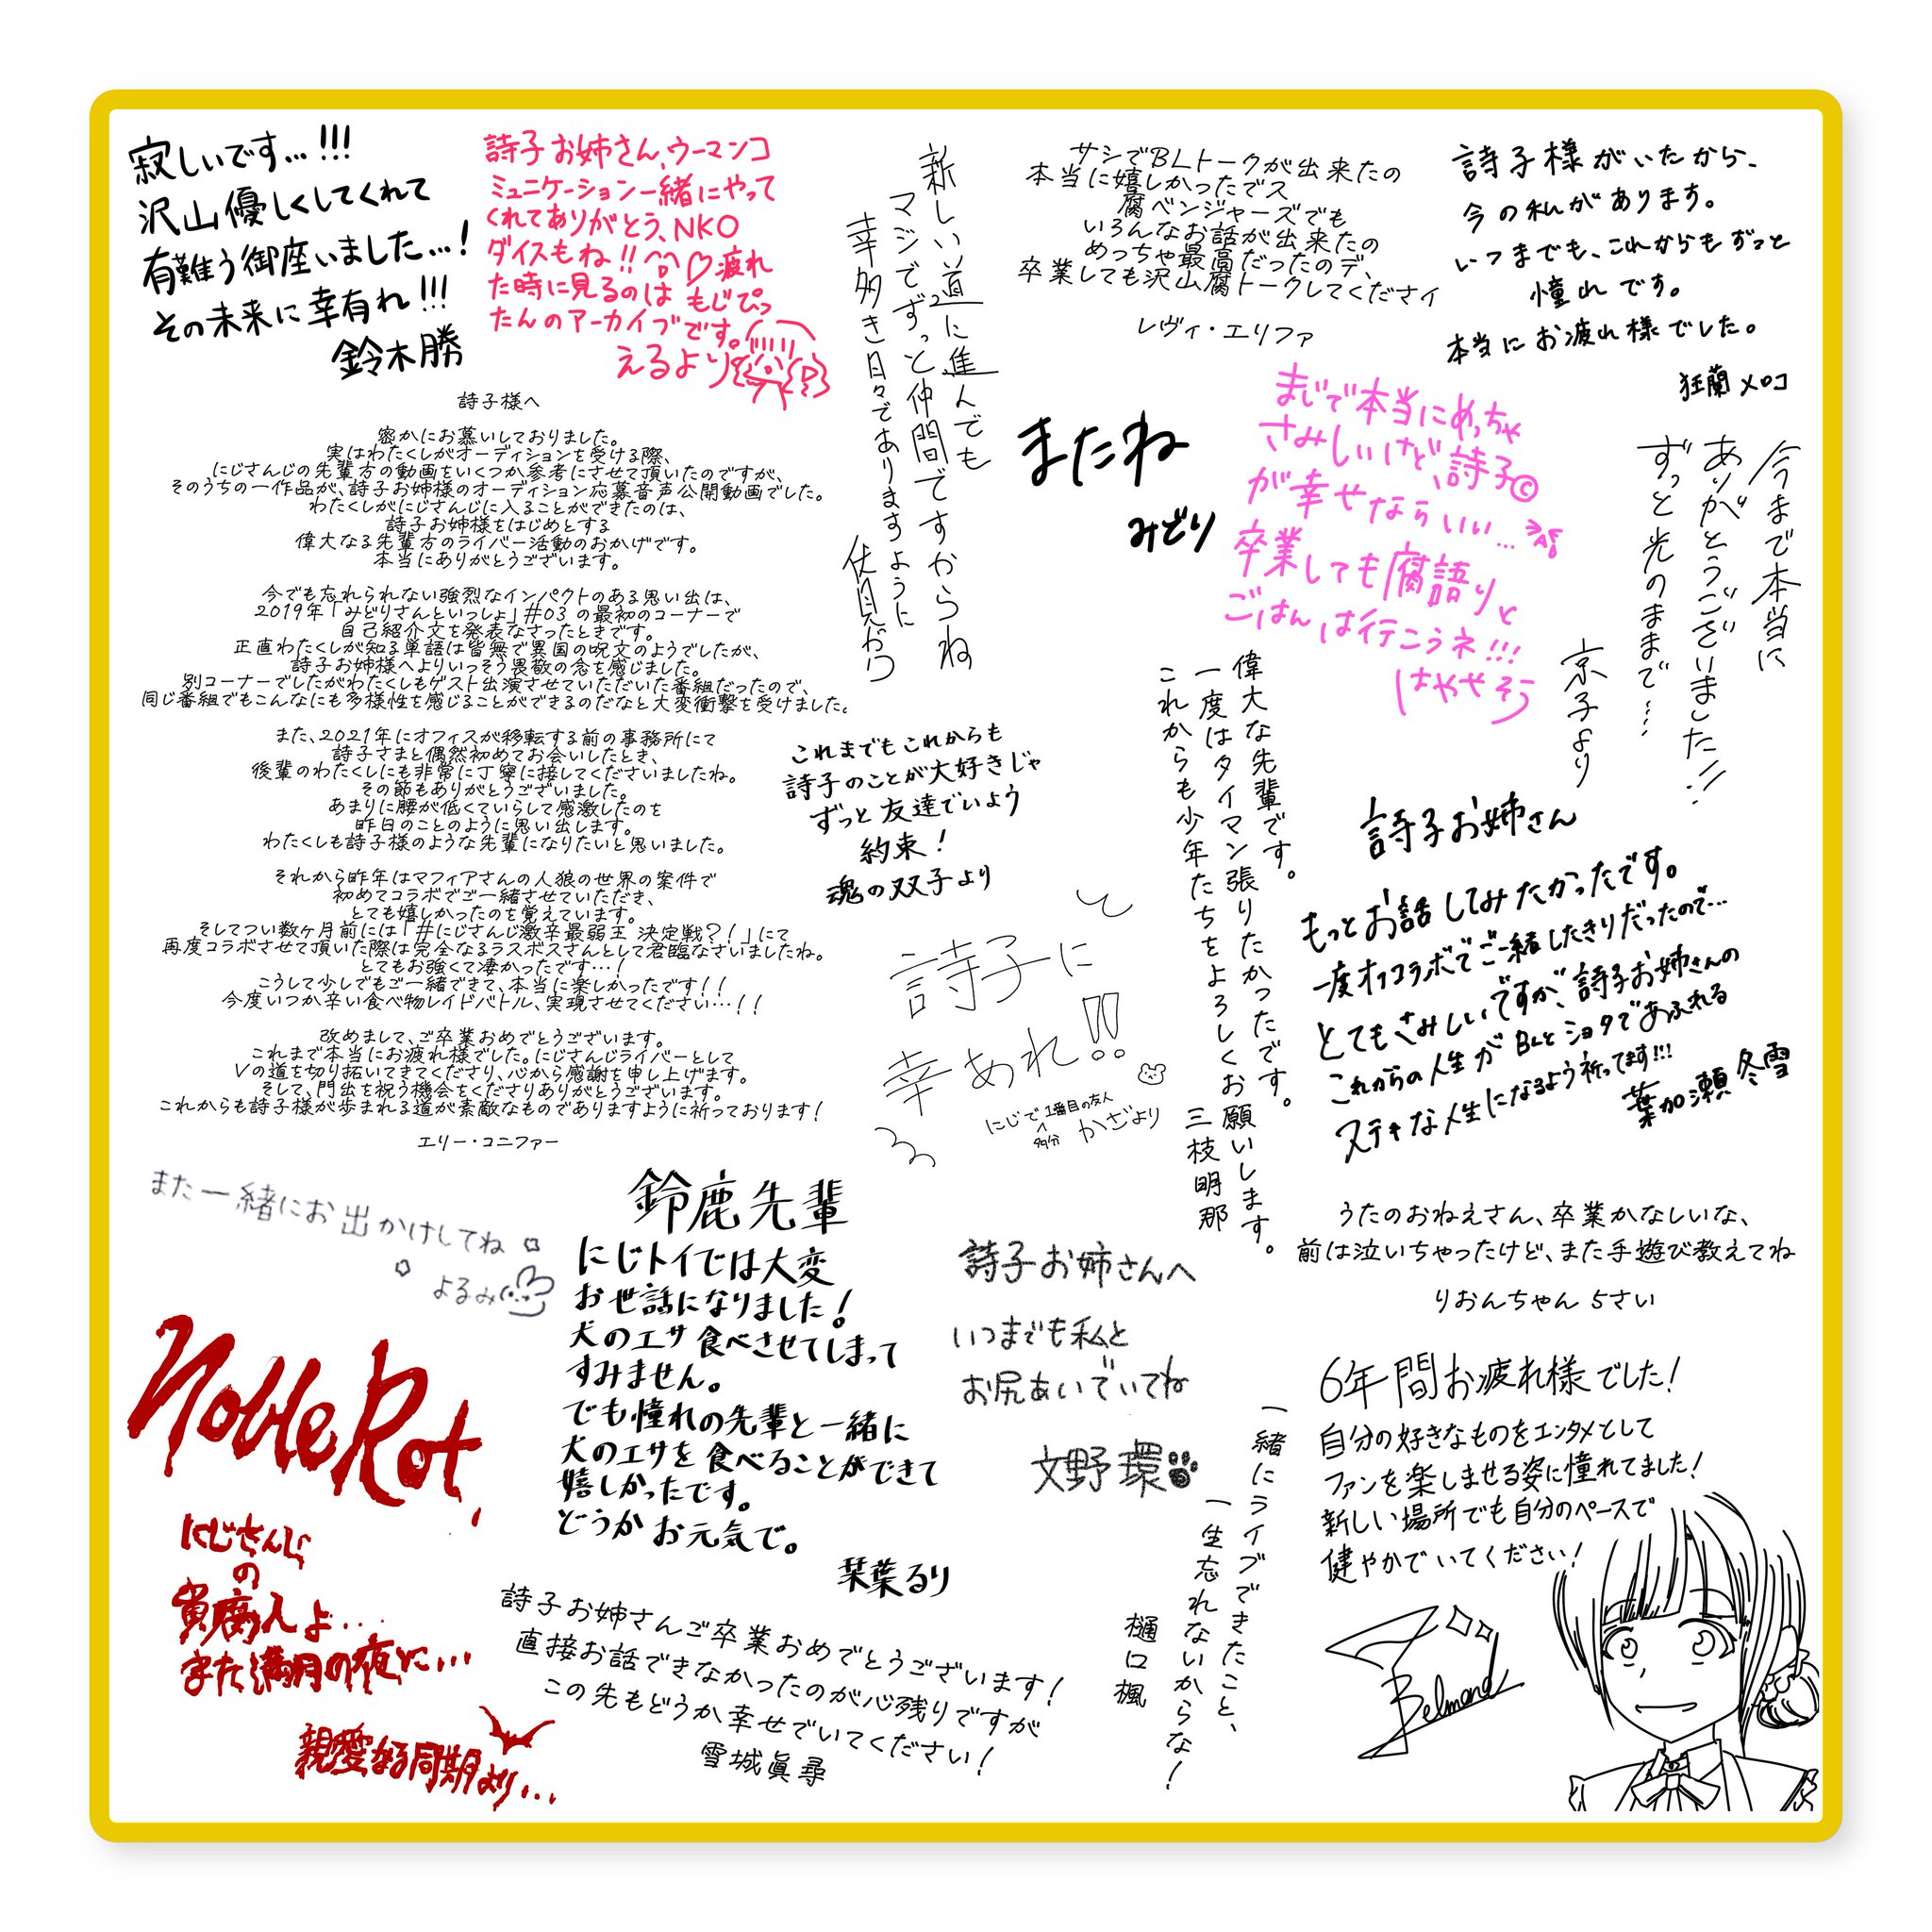 寂しいです…!!!
沢山優しくしてくれて
有難う御座いました…!
その未来に幸有れ!!!
鈴木勝
詩子お姉さん、ウーマンコ
ミュニケーション一緒にやって
くれてありがとう、NKO
ダイスもね!!♡疲れ
た時に見るのはもじぴっ
たんのアーカイブです。
えるより
新しい道に進んでも
マジでずっと仲間ですからね
幸多き日々でありますように
伏見ガク
サシでBLトークが出来たの
本当に嬉しかったでス
腐ベンジャーズでも
いろんなお話が出来たの
めっちゃ最高だったのデ、
卒業しても沢山腐トークしてくださイ
レヴィ・エリファ
詩子様がいたから、
今の私があります。
いつまでも、これからもずっと
憧れです。
本当にお疲れ様でした。
狂蘭メロコ
詩子様へ
密かにお慕いしておりました。
実はわたくしがオーディションを受ける際、
にじさんじの先輩方の動画をいくつか参考にさせて頂いたのですが、
そのうちの一作品が、詩子お姉様のオーディション応募音声公開動画でした。
わたくしがにじさんじに入ることができたのは、
詩子お姉様をはじめとする
偉大なる先輩方のライバー活動のおかげです。
本当にありがとうございます。
今でも忘れられない強烈なインパクトのある思い出は、
2019年「みどりさんといっしょ」#03の最初のコーナーで
自己紹介文を発表なさったときです。
正直わたくしが知る単語は皆無で異国の呪文のようでしたが、
詩子お姉様へよりいっそう畏敬の念を感じました。
別コーナーでしたがわたくしもゲスト出演させていただいた番組だったので、
同じ番組でもこんなにも多様性を感じることができるのだなと大変衝撃を受けました。
また、2021年にオフィスが移転する前の事務所にて
詩子さまと偶然初めてお会いしたとき、
後輩のわたくしにも非常に丁寧に接してくださいましたね。
その節もありがとうございました。
あまりに腰が低くていらして感激したのを
昨日のことのように思い出します。
わたくしも詩子様のような先輩になりたいと思いました。
それから昨年はマフィアさんの人狼の世界の案件で
初めてコラボでご一緒させていただき、
とても嬉しかったのを覚えています。
そしてつい数ヶ月前には「#にじさんじ激辛最弱王決定戦?!」にて
再度コラボさせて頂いた際は完全なるラスボスさんとして君臨なさいましたね。
とてもお強くて凄かったです…!
こうして少しでもご一緒できて、本当に楽しかったです!!
今度いつか辛い食べ物レイドバトル、実現させてください…!!
改めまして、ご卒業おめでとうございます。
これまで本当にお疲れ様でした。にじさんじライバーとして
Vの道を切り拓いてきてくださり、心から感謝を申し上げます。
そして、門出を祝う機会をくださりありがとうございます。
これからも詩子様が歩まれる道が素敵なものでありますように祈っております!
エリー・コニファー
またね
みどり
まじで本当にめっちゃ
さみしいけど、詩子©
が幸せならいい…
卒業しても腐語りと
ごはんは行こうネ!!!
はやせ そう
今まで本当に
ありがとうございました!!
ずっと光のままで……
京子より
これまでもこれからも
詩子のことが大好きじゃ
ずっと友達でいよう
約束!
魂の双子より
偉大な先輩です。
一度はタイマン張りたかったです。
これからも少年たちをよろしくお願いします。
三枝明那
詩子お姉さん
もっとお話してみたかったです。
一度オフコラボでご一緒したきりだったので…
とてもさみしいですが、詩子お姉さんの
これからの人生がBLとショタであふれる
ステキな人生になるよう祈ってます!!!
葉加瀬冬雪
詩子に
幸あれ!!
にじで1番目の友人
多分
かざより
また一緒にお出かけしてね
よるみ
鈴鹿先輩
にじトイでは大変
お世話になりました!
犬のエサ食べさせてしまって
すみません。
でも憧れの先輩と一緒に
犬のエサを食べることができて
嬉しかったです。
どうかお元気で。
栞葉るり
詩子お姉さんへ
いつまでも私と
お尻あいでいてね
文野環
うたのおねえさん、卒業かなしいな、
前は泣いちゃったけど、また手遊び教えてね
りおんちゃん 5さい
Noble Rot,
にじさんじ
の
貴腐人よ…
また満月の夜に…
親愛なる同期より…
詩子お姉さんご卒業おめでとうございます!
直接お話できなかったのが心残りですが
この先もどうか幸せでいてください!
雪城眞尋
一緒にライブできたこと、
一生忘れないからな!
樋口楓
6年間お疲れ様でした!
自分の好きなものをエンタメとして
ファンを楽しませる姿に憧れてました!
新しい場所でも自分のペースで
健やかでいてください!
Belmond